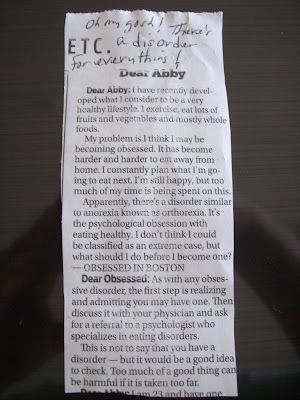 Oh my gosh! There's
ETC. a disorder
for everything!
Dear Abby
Dear Abby: I have recently devel-
oped what I consider to be a very
healthy lifestyle. I exercise, eat lots of
fruits and vegetables and mostly whole
foods.
My problem is I think I may be
becoming obsessed. It has become
harder and harder to eat away from
home. I constantly plan what I'm go-
ing to eat next. I'm still happy, but too
much of my time is being spent on this.
Apparently, there's a disorder similar
to anorexia known as orthorexia. It's
the psychological obsession with
eating healthy. I don't think I could
be classified as an extreme case, but
what should I do before I become one?
— OBSESSED IN BOSTON
Dear Obsessed: As with any obses-
sive disorder, the first step is realizing
and admitting you may have one. Then
discuss it with your physician and ask
for a referral to a psychologist who
specializes in eating disorders.
This is not to say that you have a
disorder — but it would be a good idea
to check. Too much of a good thing can
be harmful if it is taken too far.
Dear Abby: I am 23 and have one